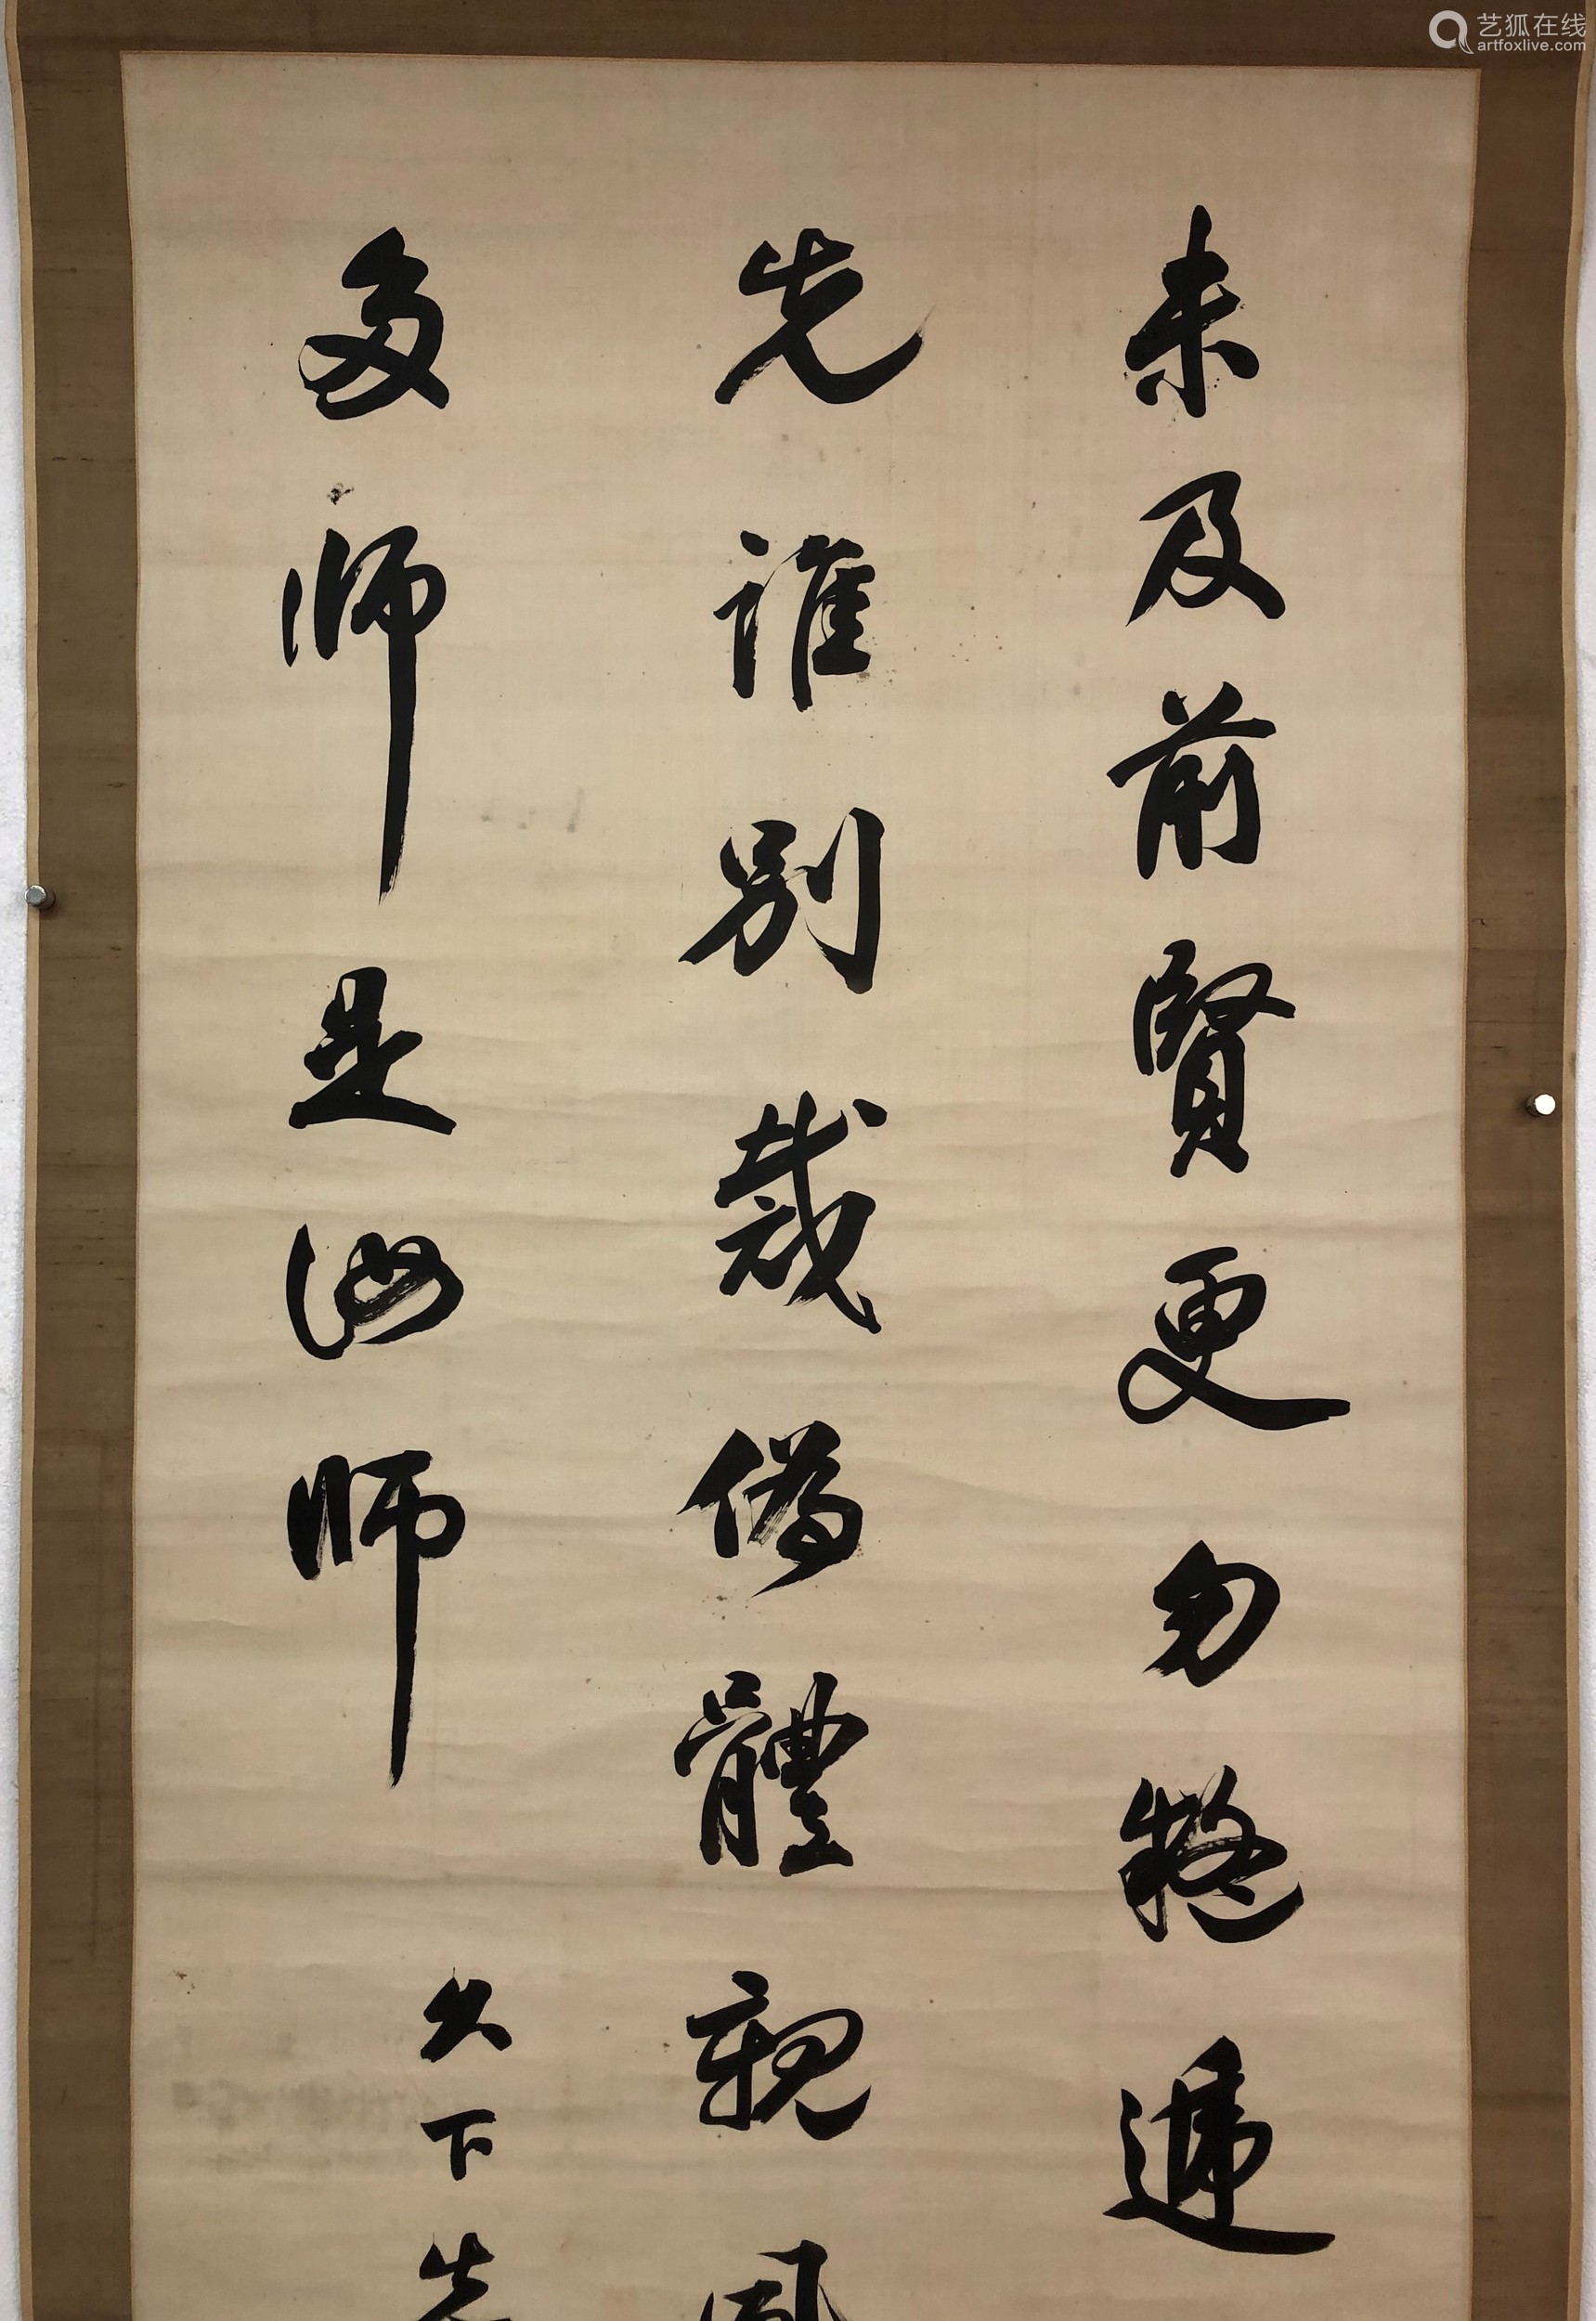 艺狐在线
artfoxlive.com
未及前賢更勿疑遞
先誰別裁偽體親風
多師是汝師
久下先